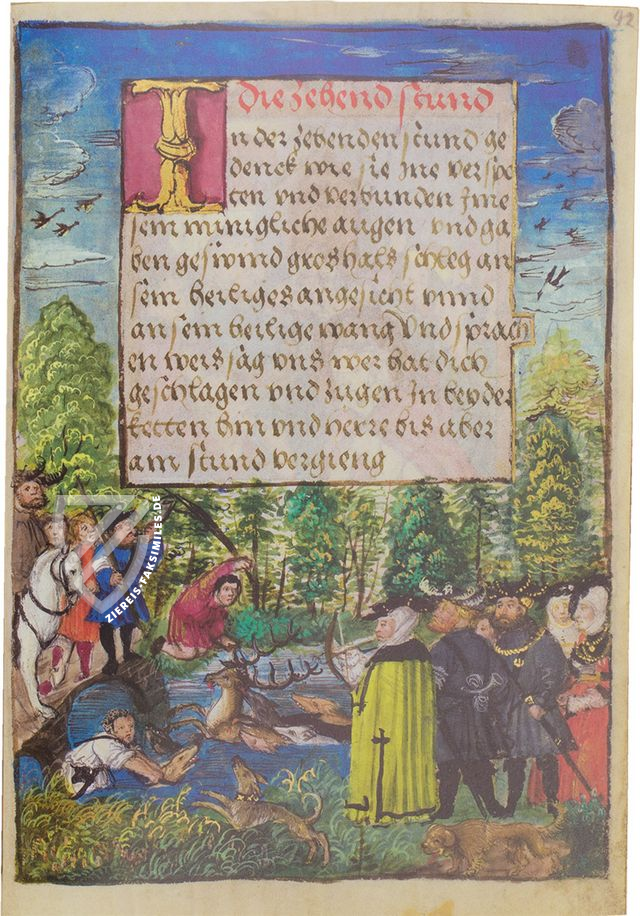 92
Die zehend stund
In der zehenden stund ge
denck wie sie ine verspo
ten vnd verbunden Ime
sein minigliche augen vnd ga
ben geswind gros hals schleg an
sein heiliges angesicht vnnd
an sein heilige wang Vnd sprach
en weissag vns wer hat dich
geschlagen vnd zugen In bey der
ketten hin vnd herre bis aber
am stund vergieng
ZIEREIS-FAKSIMILES.DE